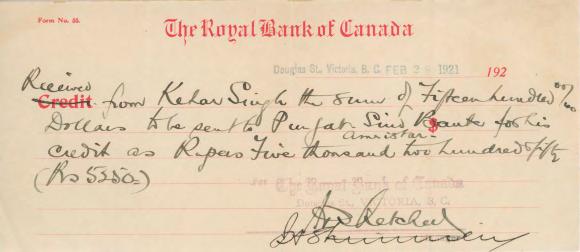 Form No. 55.
The Royal Bank of Canada
Douglas St., Victoria, B. C. FEB 28 1921 192
Received
Credit from Kehar Singh the sum of Fifteen hundred 00/100
Dollars to be sent to Punjab Sind Bank for his
Amristar
credit as Rupees Five thousand two hundred &
(Rs 5250=)
For The Royal Bank of Canada
Douglas St., VICTORIA, B. C.